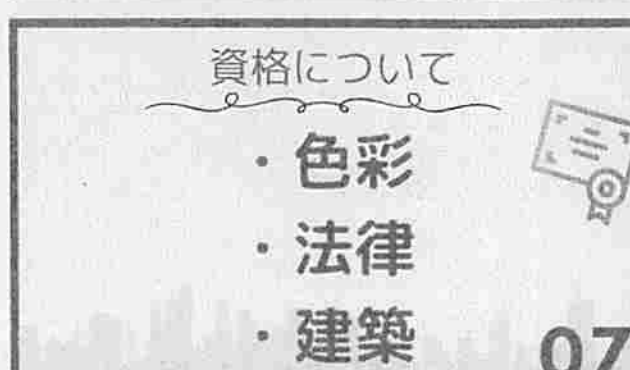 資格について
・色彩
・法律
・建築
07